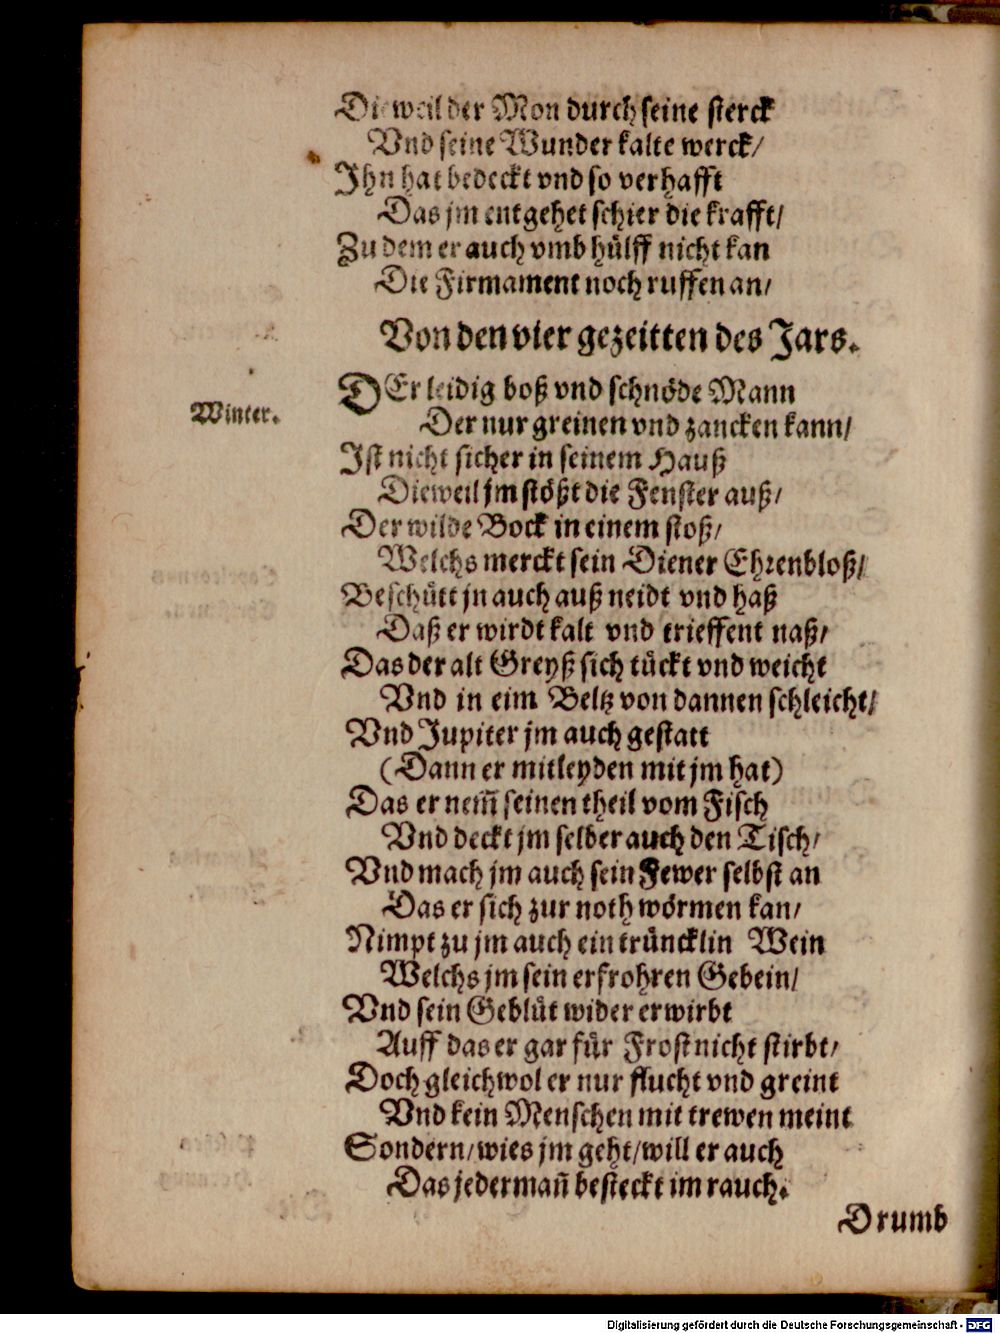 Dieweil der Mon durch seine sterck
Vnd seine Wunder kalte werck/
Jhn hat bedeckt vnd so verhafft
Das jm entgehet schier die krafft/
Zu dem er auch vmb hülff nicht kan
Die Firmament noch ruffen an/
Von den vier gezeitten des Jars.
DEr leidig boß vnd schnöde Mann
Winter.
Der nur greinen vnd zancken kann/
Jst nicht sicher in seinem Hauß
Dieweil jm stößt die Fenster auß/
Der wilde Bock in einem stoß/
Welchs merckt sein Diener Ehrenbloß/
Beschütt jn auch auß neidt vnd haß
Daß er wirdt kalt vnd trieffent naß/
Das der alt Greyß sich tückt vnd weicht
Vnd in eim Beltz von dannen schleicht/
Vnd Jupiter jm auch gestatt
(Dann er mitleyden mit jm hat)
Das er nem̄ seinen theil vom Fisch
Vnd deckt jm selber auch den Tisch/
Vnd mach jm auch sein Fewer selbst an
Das er sich zur noth wörmen kan/
Nimpt zu jm auch ein trüncklin Wein
Welchs jm sein erfrohren Gebein/
Vnd sein Geblüt wider erwirbt
Auff das er gar für Frost nicht stirbt/
Doch gleichwol er nur flucht vnd greint
Vnd kein Menschen mit trewen meint
Sondern/wies jm geht/will er auch
Das jedermañ besteckt im rauch.
Drumb
Digitalisierung gefördert durch die Deutsche Forschungsgemeinschaft - DFG